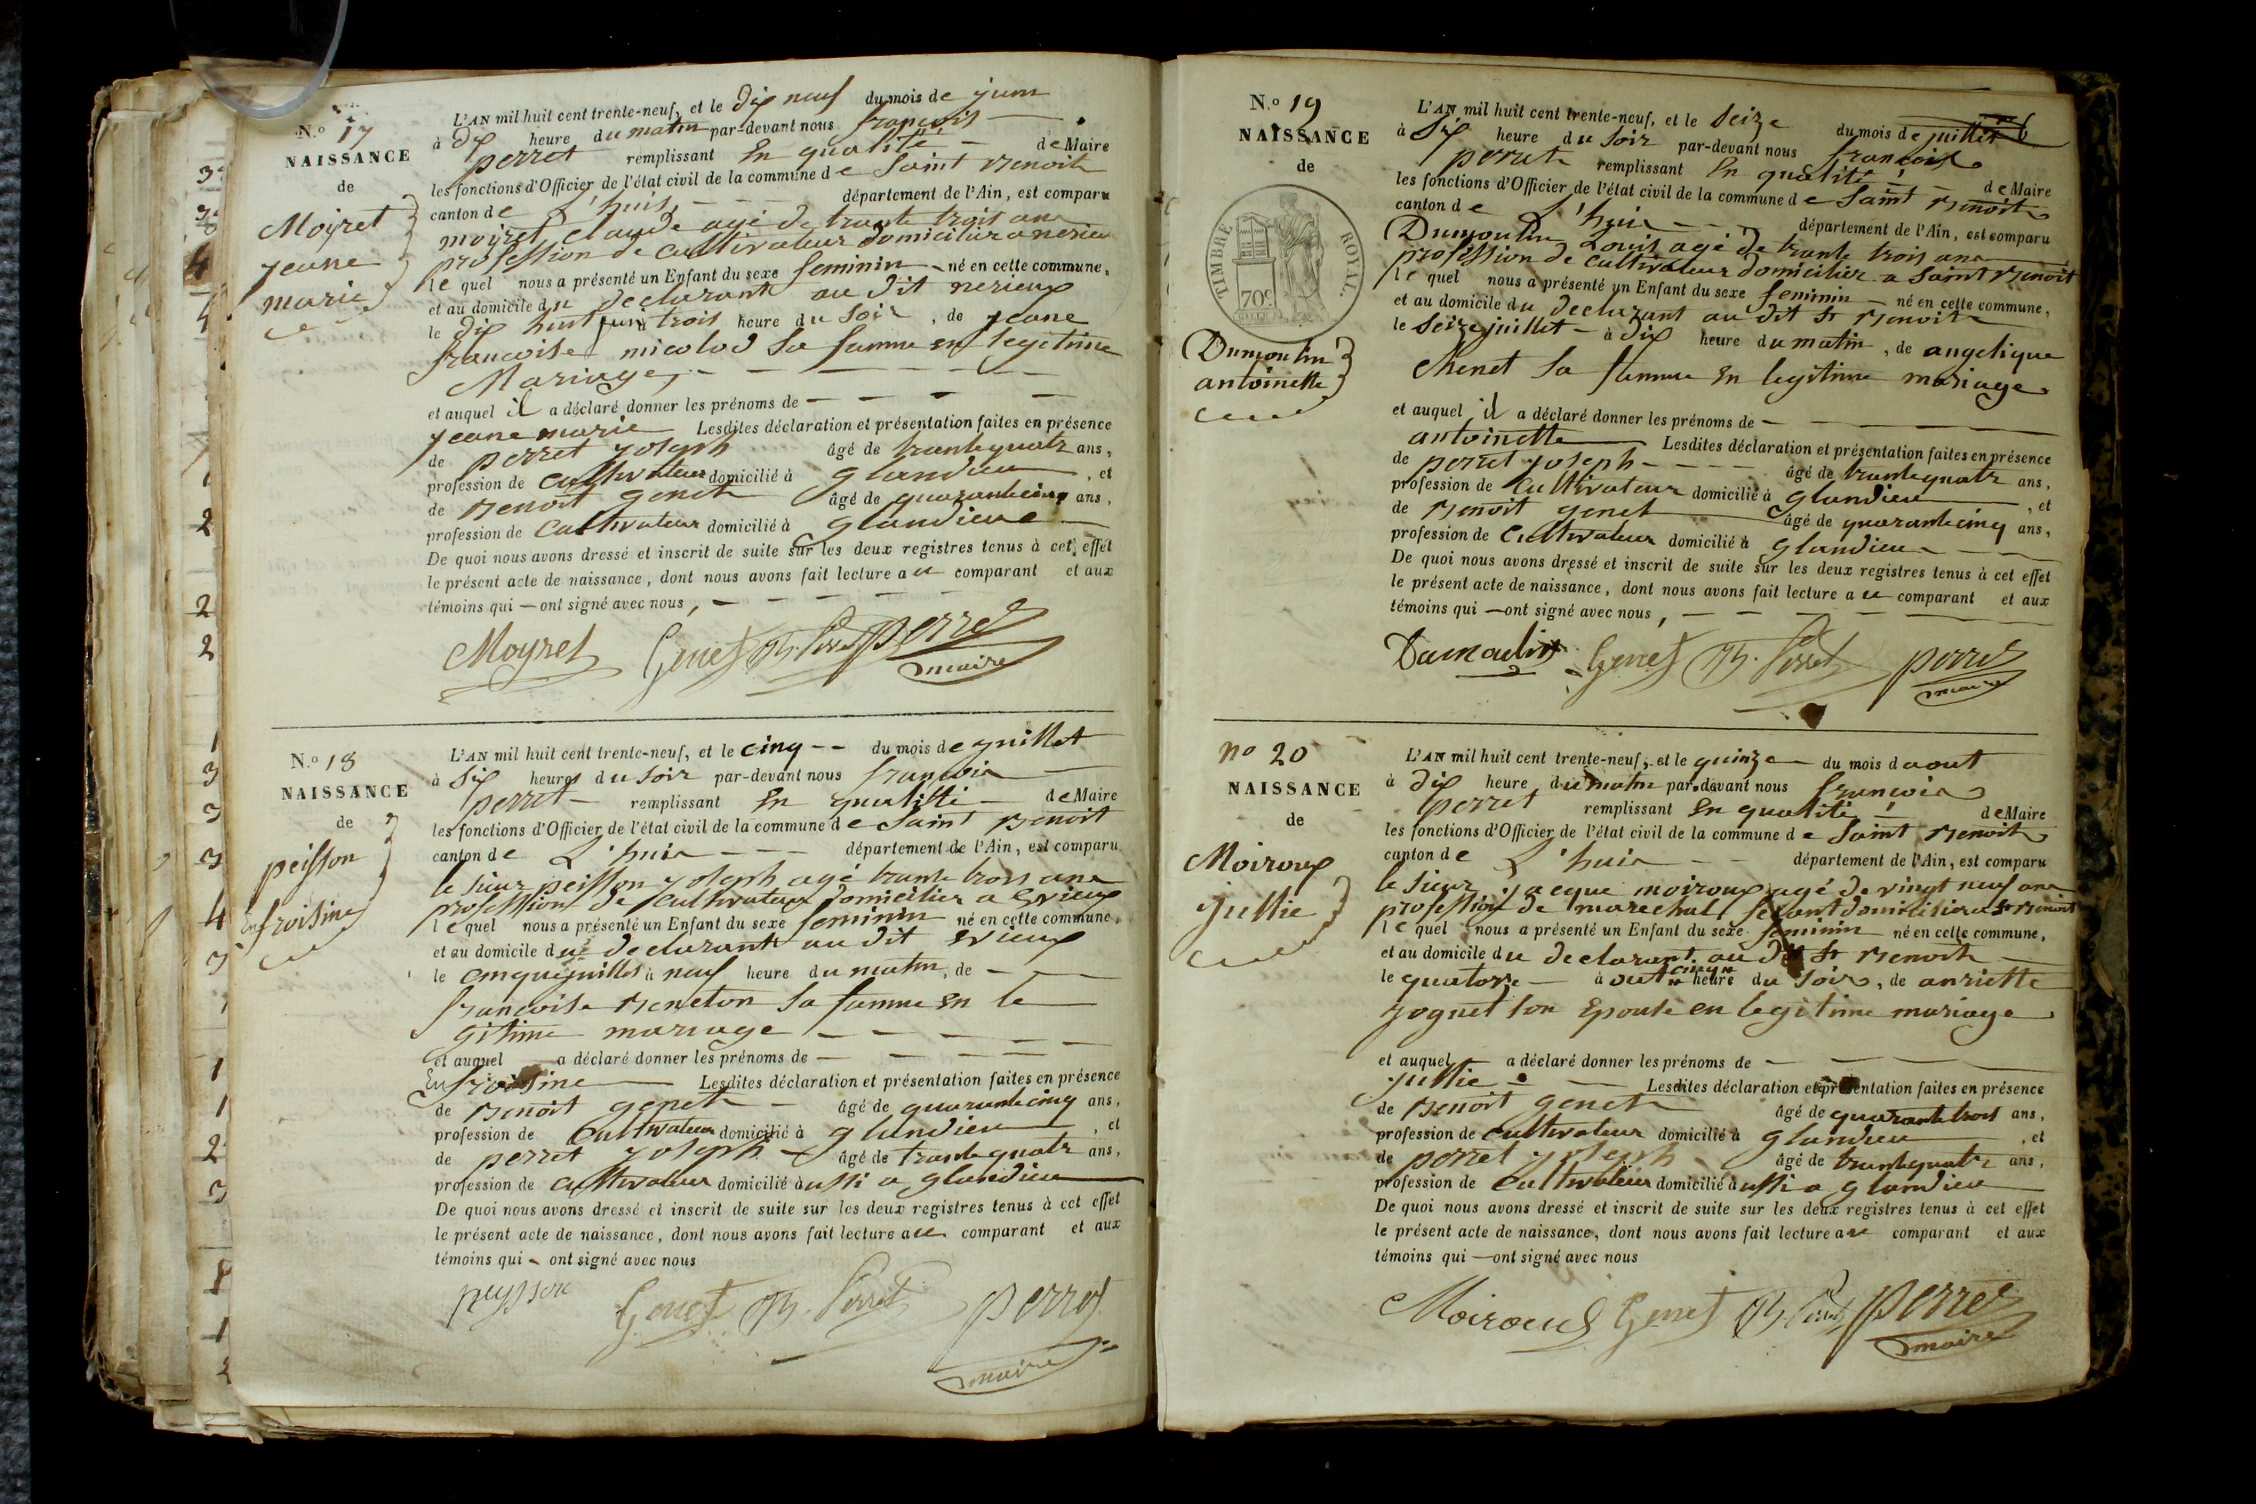 N.o 17
NAISSANCE
de
Moyret
jeane
marie
L'AN mil huit cent trente-neuf, et le dix neuf du mois de juin
à dix heure du matin par-devant nous francois
perret remplissant En qualité de Maire
les fonctions d'Officier de l'état civil de la commune de Saint Benoit
canton de L'huis département de l'Ain, est comparu
moyret claude agé de trante trois ans
profession de cultivateur domicilier a nerieu
le quel nous a présenté un Enfant du sexe feminin né en cette commune,
et au domicile du declarant au dit nerieux
le dix huit juin trois heure du Soir, de jeane
francoise micolod Sa famme en legitime
Mariage,
et auquel il a déclaré donner les prénoms de
jeane marie Lesdites déclaration et présentation faites en présence
de perret joseph âgé de trante quatr ans,
profession de cultivateur domicilié à glandieu, et
de Benoit genet âgé de quarante cinq ans,
profession de cultivateur domicilié à glandieu
De quoi nous avons dressé et inscrit de suite sur les deux registres tenus à cet effet
le présent acte de naissance, dont nous avons fait lecture au comparant et aux
témoins qui — ont signé avec nous,
Moyret Genet Perret perret
maire
N.o 18
NAISSANCE
de
peisson
Eufroisine
L'AN mil huit cent trente-neuf, et le cinq du mois de juillet
à Six heures du Soir par-devant nous francois
perret remplissant En qualité de Maire
les fonctions d'Officier de l'état civil de la commune de Saint Benoit
canton de L'huis département de l'Ain, est comparu
le Sieur peisson joseph agé trante trois ans
profession de cultivateur domicilier a Evieux
le quel nous a présenté un Enfant du sexe feminin né en cette commune,
et au domicile du declarant au dit Evieux
le cinq juillet à neuf heure du matin, de
francoise Beneton Sa famme en le
gitime mariage
et auquel a déclaré donner les prénoms de
Eufroisine Lesdites déclaration et présentation faites en présence
de Benoit genet âgé de quarante cinq ans,
profession de Cultivateur domicilié à glandieu, et
de perret joseph âgé de trante quatr ans,
profession de cultivateur domicilié à ussi a glandieu
De quoi nous avons dressé et inscrit de suite sur les deux registres tenus à cet effet
le présent acte de naissance, dont nous avons fait lecture au comparant et aux
témoins qui - ont signé avec nous
peysson Genet Perret perret
maire
N.o 19
NAISSANCE
de
TIMBRE ROYAL.
70c
Dumoulin
antoinette
L'AN mil huit cent trente-neuf, et le Seize du mois de juillet
à Six heure du Soir par-devant nous francois
perret remplissant En qualité de Maire
les fonctions d'Officier de l'état civil de la commune de Saint Benoit
canton de L'huis département de l'Ain, est comparu
Dumoulin Louis agé de trante trois ans
profession de cultivateur domicilier a Saint Benoit
le quel nous a présenté un Enfant du sexe feminin né en cette commune,
et au domicile du declarant au dit St Benoit
le Seize juillet à dix heure du matin, de angelique
Chenet Sa famme En legitime mariage
et auquel il a déclaré donner les prénoms de
antoinette Lesdites déclaration et présentation faites en présence
de perret joseph âgé de trante quatr ans,
profession de Cultivateur domicilié à glandieu, et
de Benoit genet âgé de quarante cinq ans,
profession de Cultivateur domicilié à glandieu
De quoi nous avons dressé et inscrit de suite sur les deux registres tenus à cet effet
le présent acte de naissance, dont nous avons fait lecture au comparant et aux
témoins qui — ont signé avec nous,
Dumoulin Genet Perret perret
maire
no 20
NAISSANCE
de
Moiroux
jullie
L'AN mil huit cent trente-neuf, et le quinze du mois d aout
à dix heure du matin par-devant nous francois
perret remplissant En qualité de Maire
les fonctions d'Officier de l'état civil de la commune de Saint Benoit
canton de L'huis département de l'Ain, est comparu
le Sieur jacque moiroux agé de vingt neuf ans
profession de marechal ferant domicilier a St Benoit
le quel nous a présenté un Enfant du sexe feminin né en cette commune,
et au domicile du declarant au dit St Benoit
le quatorze à cinq heure du Soir, de anriette
jognet Son Epouse en legitime mariage
et auquel a déclaré donner les prénoms de
jullie Lesdites déclaration et présentation faites en présence
de Benoit genet âgé de quarante trois ans,
profession de cultivateur domicilié à glandieu, et
de perret joseph âgé de trante quatr ans,
profession de Cultivateur domicilié à ussi a glandieu
De quoi nous avons dressé et inscrit de suite sur les deux registres tenus à cet effet
le présent acte de naissance, dont nous avons fait lecture au comparant et aux
témoins qui — ont signé avec nous
Moiroud Genet Perret perret
maire